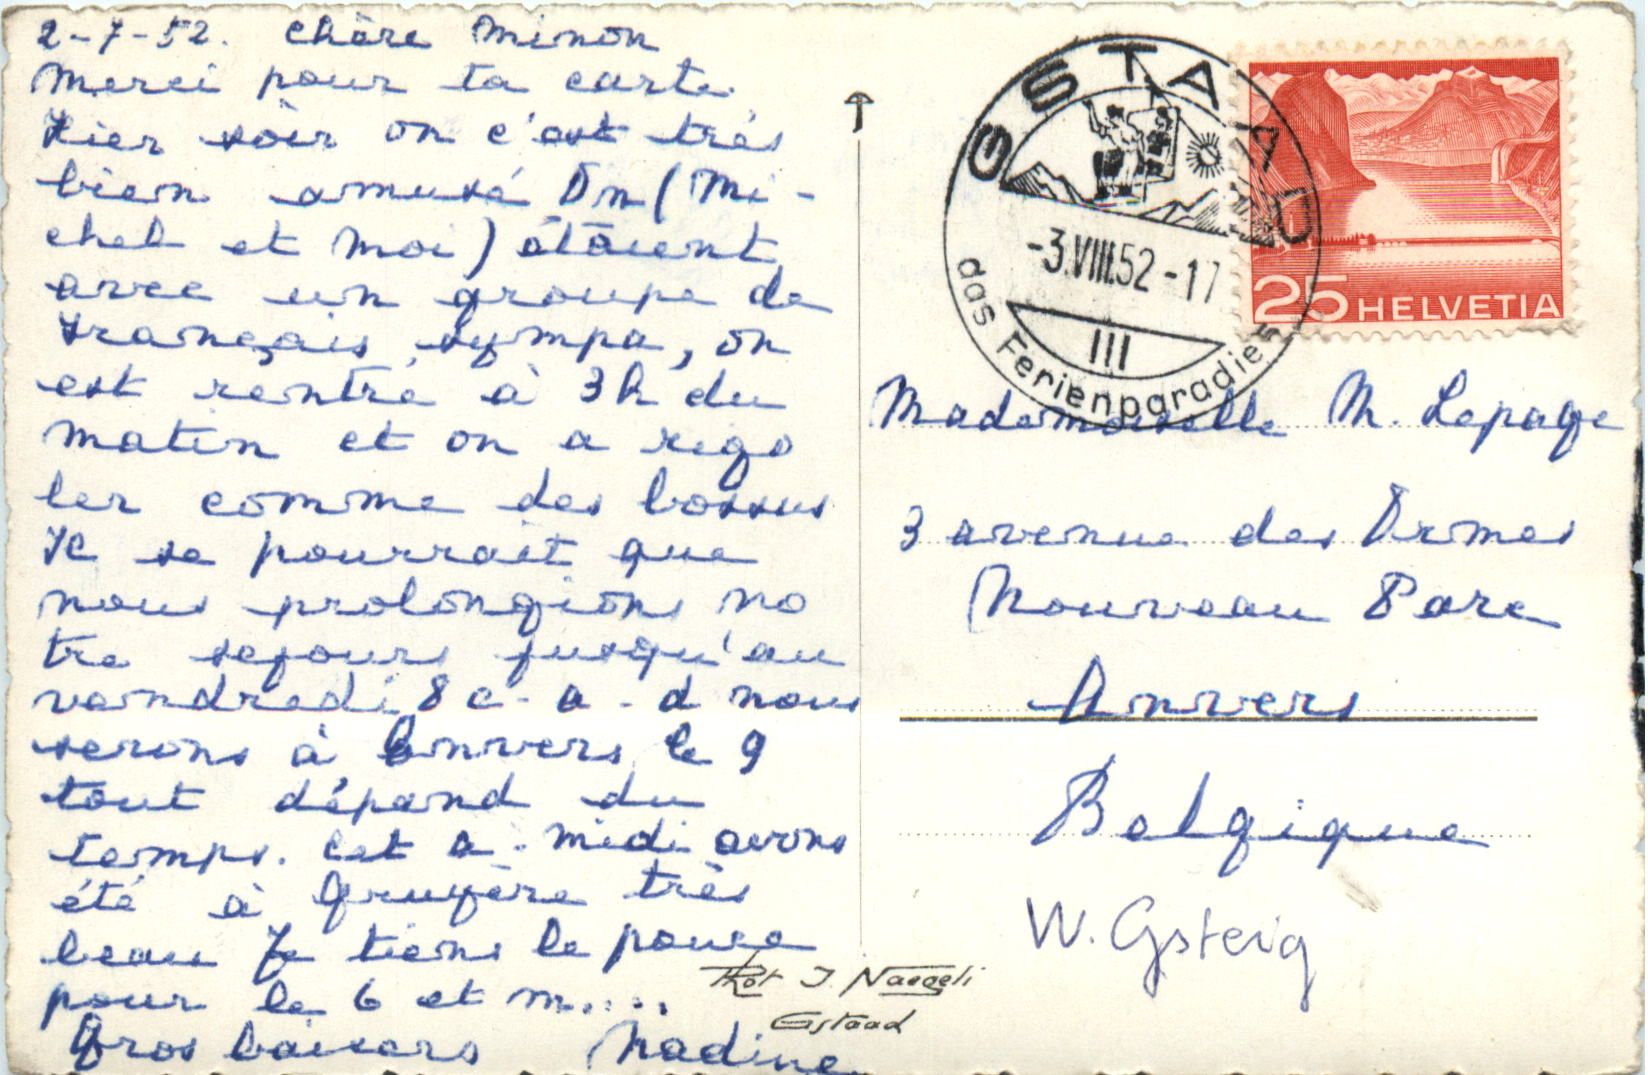 2-7-52. Chère Minon
Merci pour ta carte.
Hier soir on c'est très
bien amusé On (Mi-
chel et Moi) étaient
avec un groupe de
Français sympa, on
est rentré à 3h du
matin et on a rigo
ler comme des bossus
Il se pourrait que
nous prolongions no
tre sejours jusqu'au
vendredi 8 c-a-d nous
serons à Anvers le 9
tout dépend du
temps. Cet a-midi avons
été à Gruyère très
beau Je tiens le pouce
pour le 6 et m.....
Gros baisers Nadine
GSTAAD
-3.VIII.52-17
III
das Ferienparadies
25 HELVETIA
Mademoiselle M. Lepage
3 avenue des Ormes
Nouveau Parc
Anvers
Belgique
W. Gsteig
Phot J. Naegeli
Gstaad